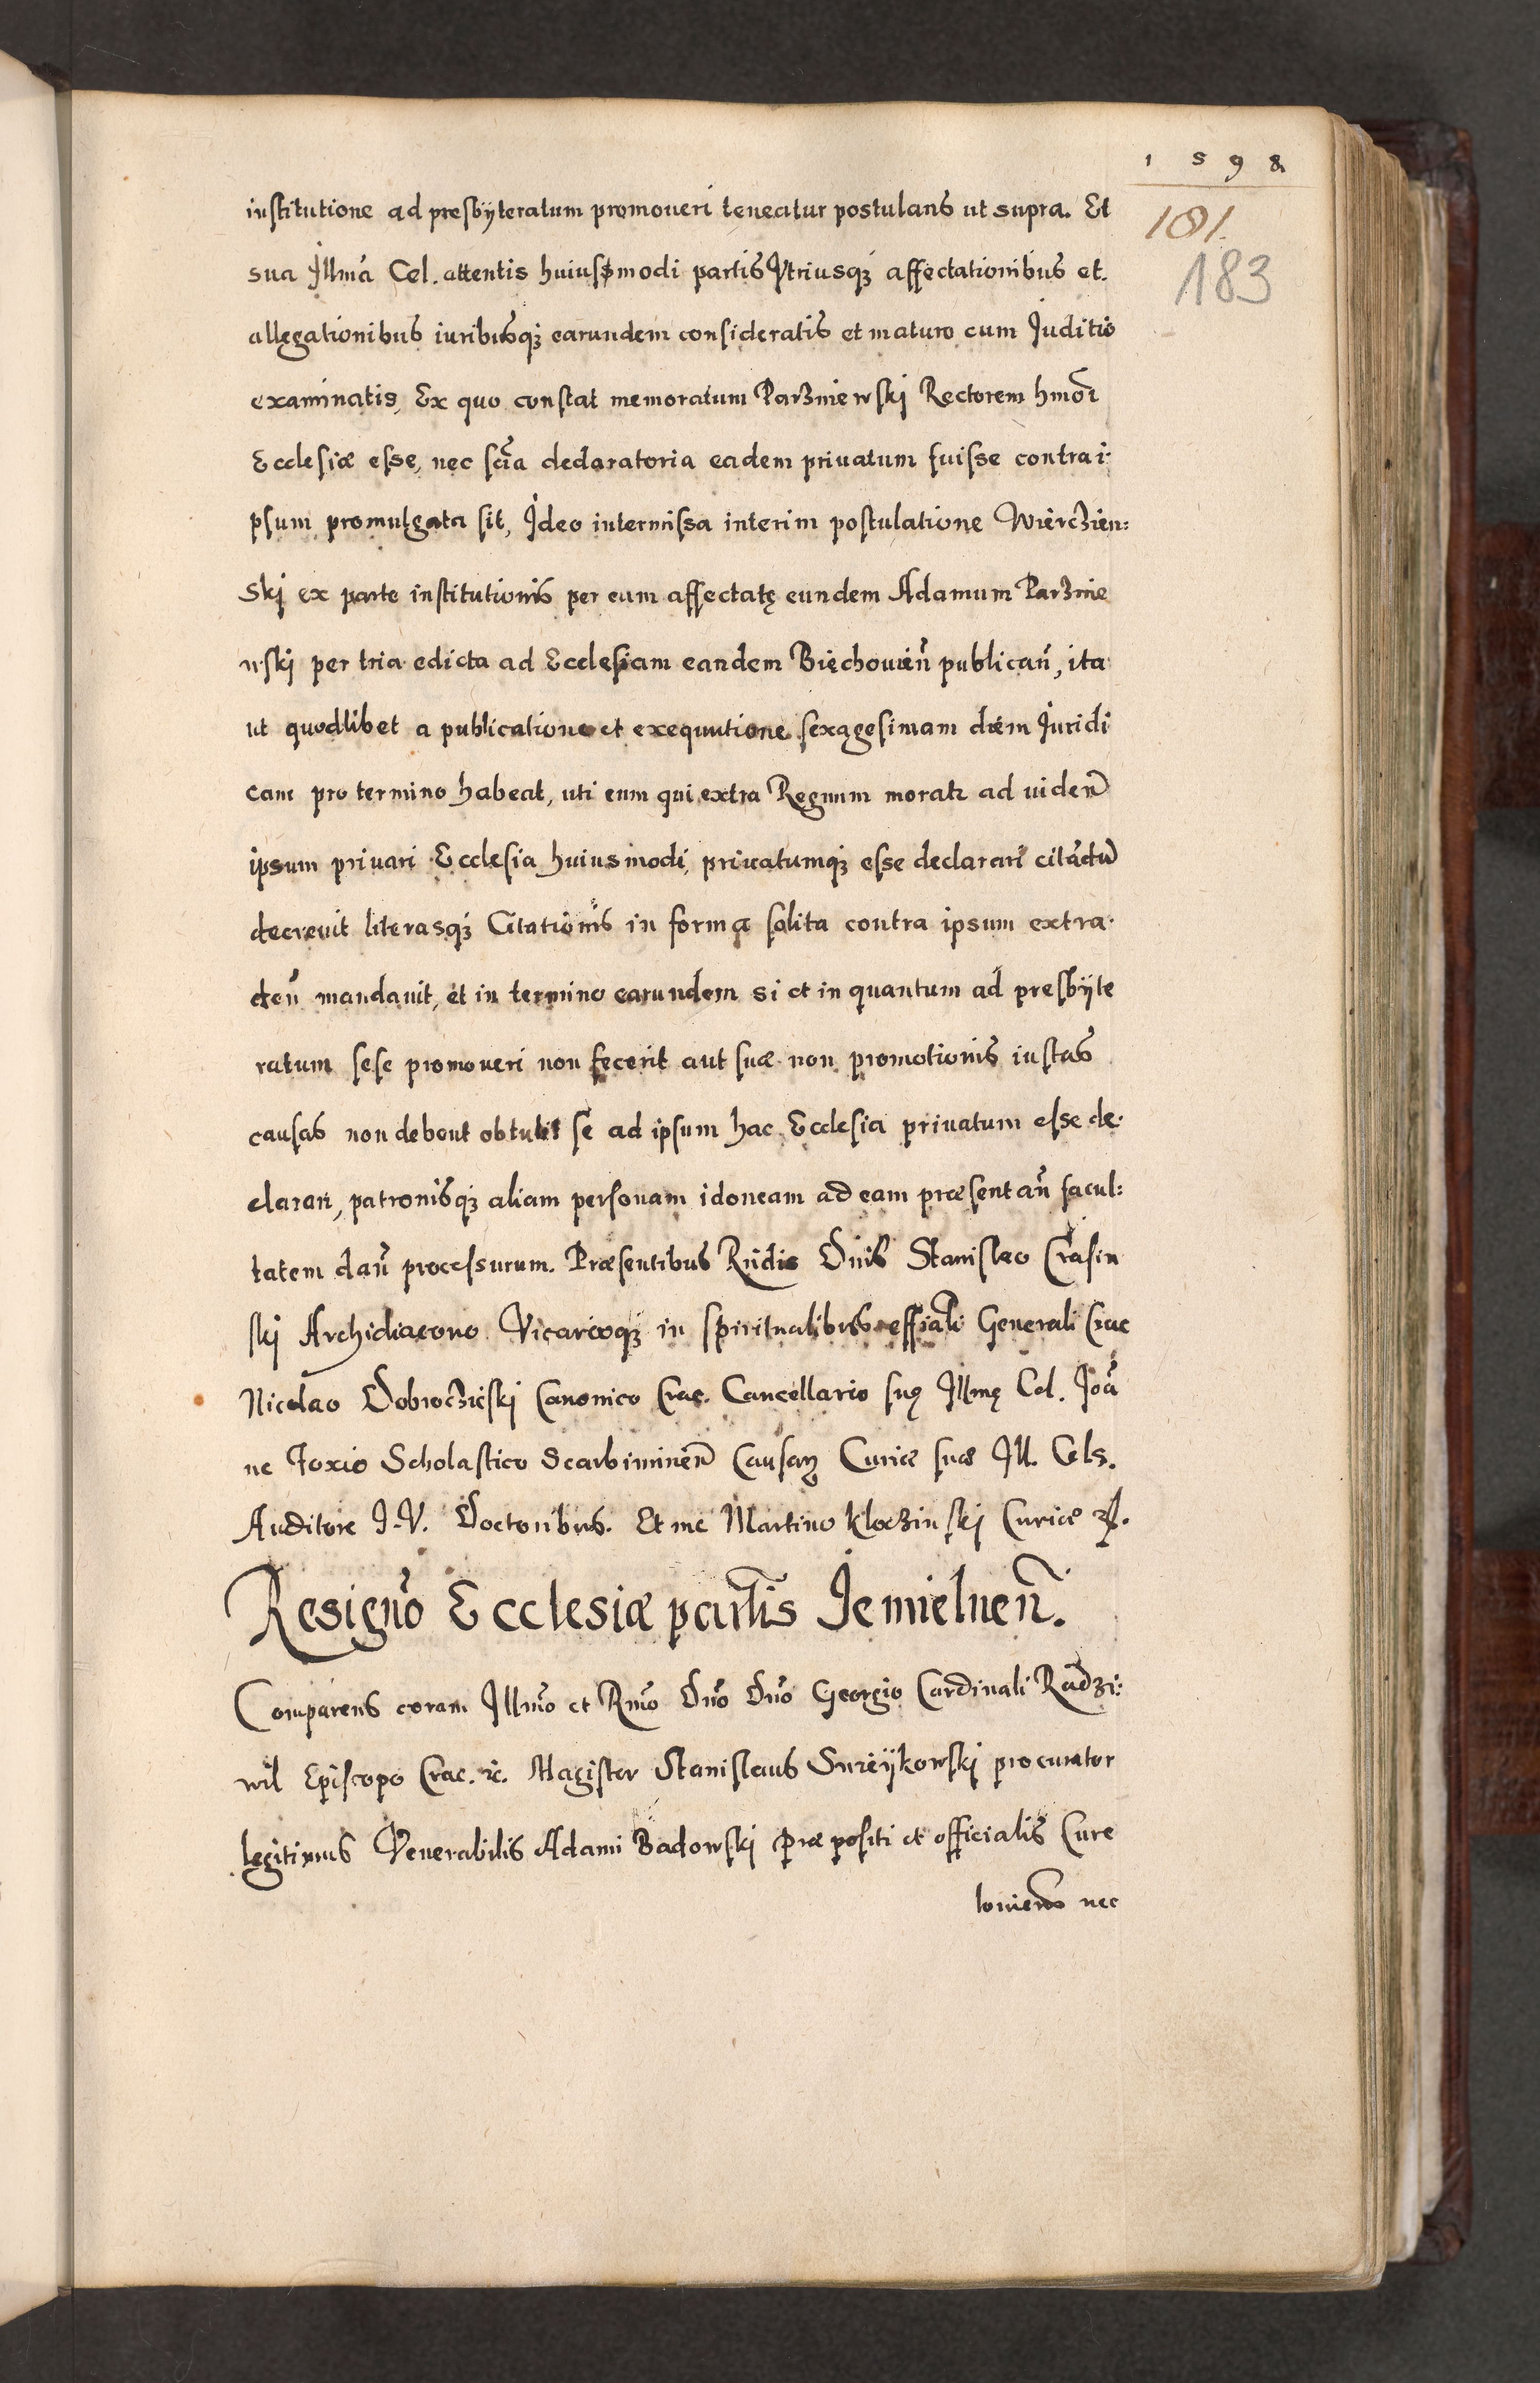 1598
181.
183
institutione ad presbÿteratum promoueri teneatur postulans ut supra. Et
sua Jllma Cel. attentis huiusmodi partis Vtriusqȝ affectationibus et
allegationibus iuribusqȝ earundem consideratis et maturo cum Juditio
examinatis, Ex quo constat memoratum Parzniewski Rectorem hmoi
Ecclesiæ esse, nec scia declaratoria eadem priuatum fuisse contra i:
psum promulgata sit, Jdeo intermissa interim postulatione Wierczien:
skj ex parte institutionis per eum affectatę eundem Adamum Parznie
wskj per tria edicta ad Ecclesiam eandem Biechouien publican, ita
ut quodlibet a publicatione et exequutione sexagesimam diem Juridi
cam pro termino habeat, uti eum qui extra Regnum moratr ad uiden
ipsum priuari Ecclesia huiusmodi, priuatumqȝ esse declarari citandu
decreuit literasqȝ Citationis in forma solita contra ipsum extra.
den mandauit, et in termino earundem si et in quantum ad presbÿte
ratum sese promoueri non fecerit aut suæ non promotionis iustas
causas non debent obtulit se ad ipsum hac Ecclesia priuatum esse de.
clarari, patronisqȝ aliam personam idoneam ad eam præsentan facul:
tatem dan processurum. Præsentibus Rndis Dnis Stanislao Crasin
skj Archidiacono Vicarioqȝ in spiritualibus offiali Generali Crac
Nicolao Dobrocziesкj Canonico Crac. Cancellario suę Jllmę Cel. Joa
ne Foxio Scholastico Scarbimirien Causarȝ Curiæ suæ Jll. Cels.
Auditore J. V. Doctoribus. Et me Martino Kloczinskj Curiæ
Resigno Ecclesiæ partis Jemieluen.
Comparens coram Jllmo et Rmo Dno Dno Georgio Cardinali Radzi:
wil Episcopo Crac. &c. Magister Stanislaus Sureÿkowskj procurator
legitimus Venerabilis Adami Badowskj Præpositi et officialis Cure
louien nec